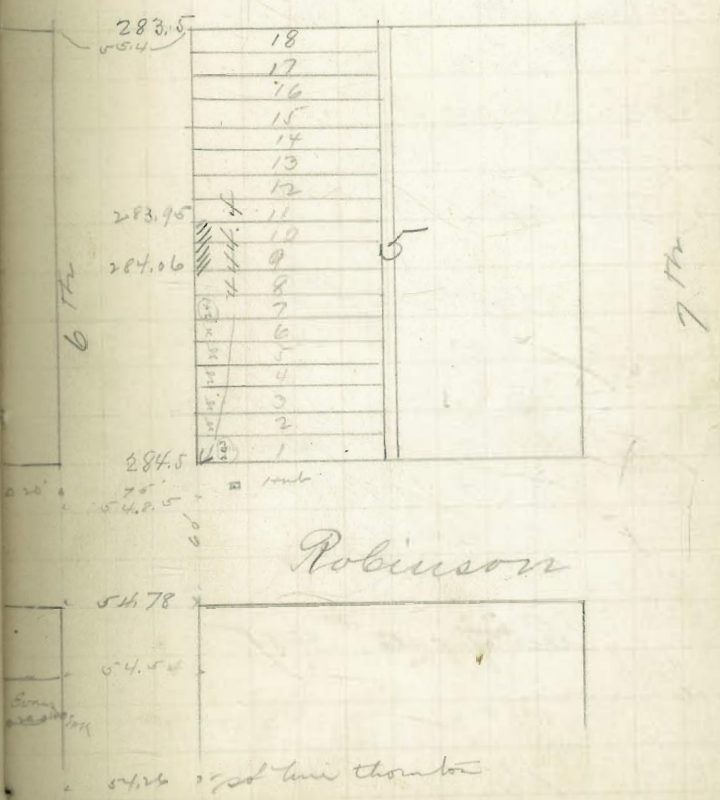 283.5
55.4
18
17
16
15
14
13
12
283.95
11
10
284.06
9
8
7
6
5
4
3
2
284.5
1
5
6 th
7 th
75'
548.5
60
Robinson
54.78
54.54
54.26
thornton